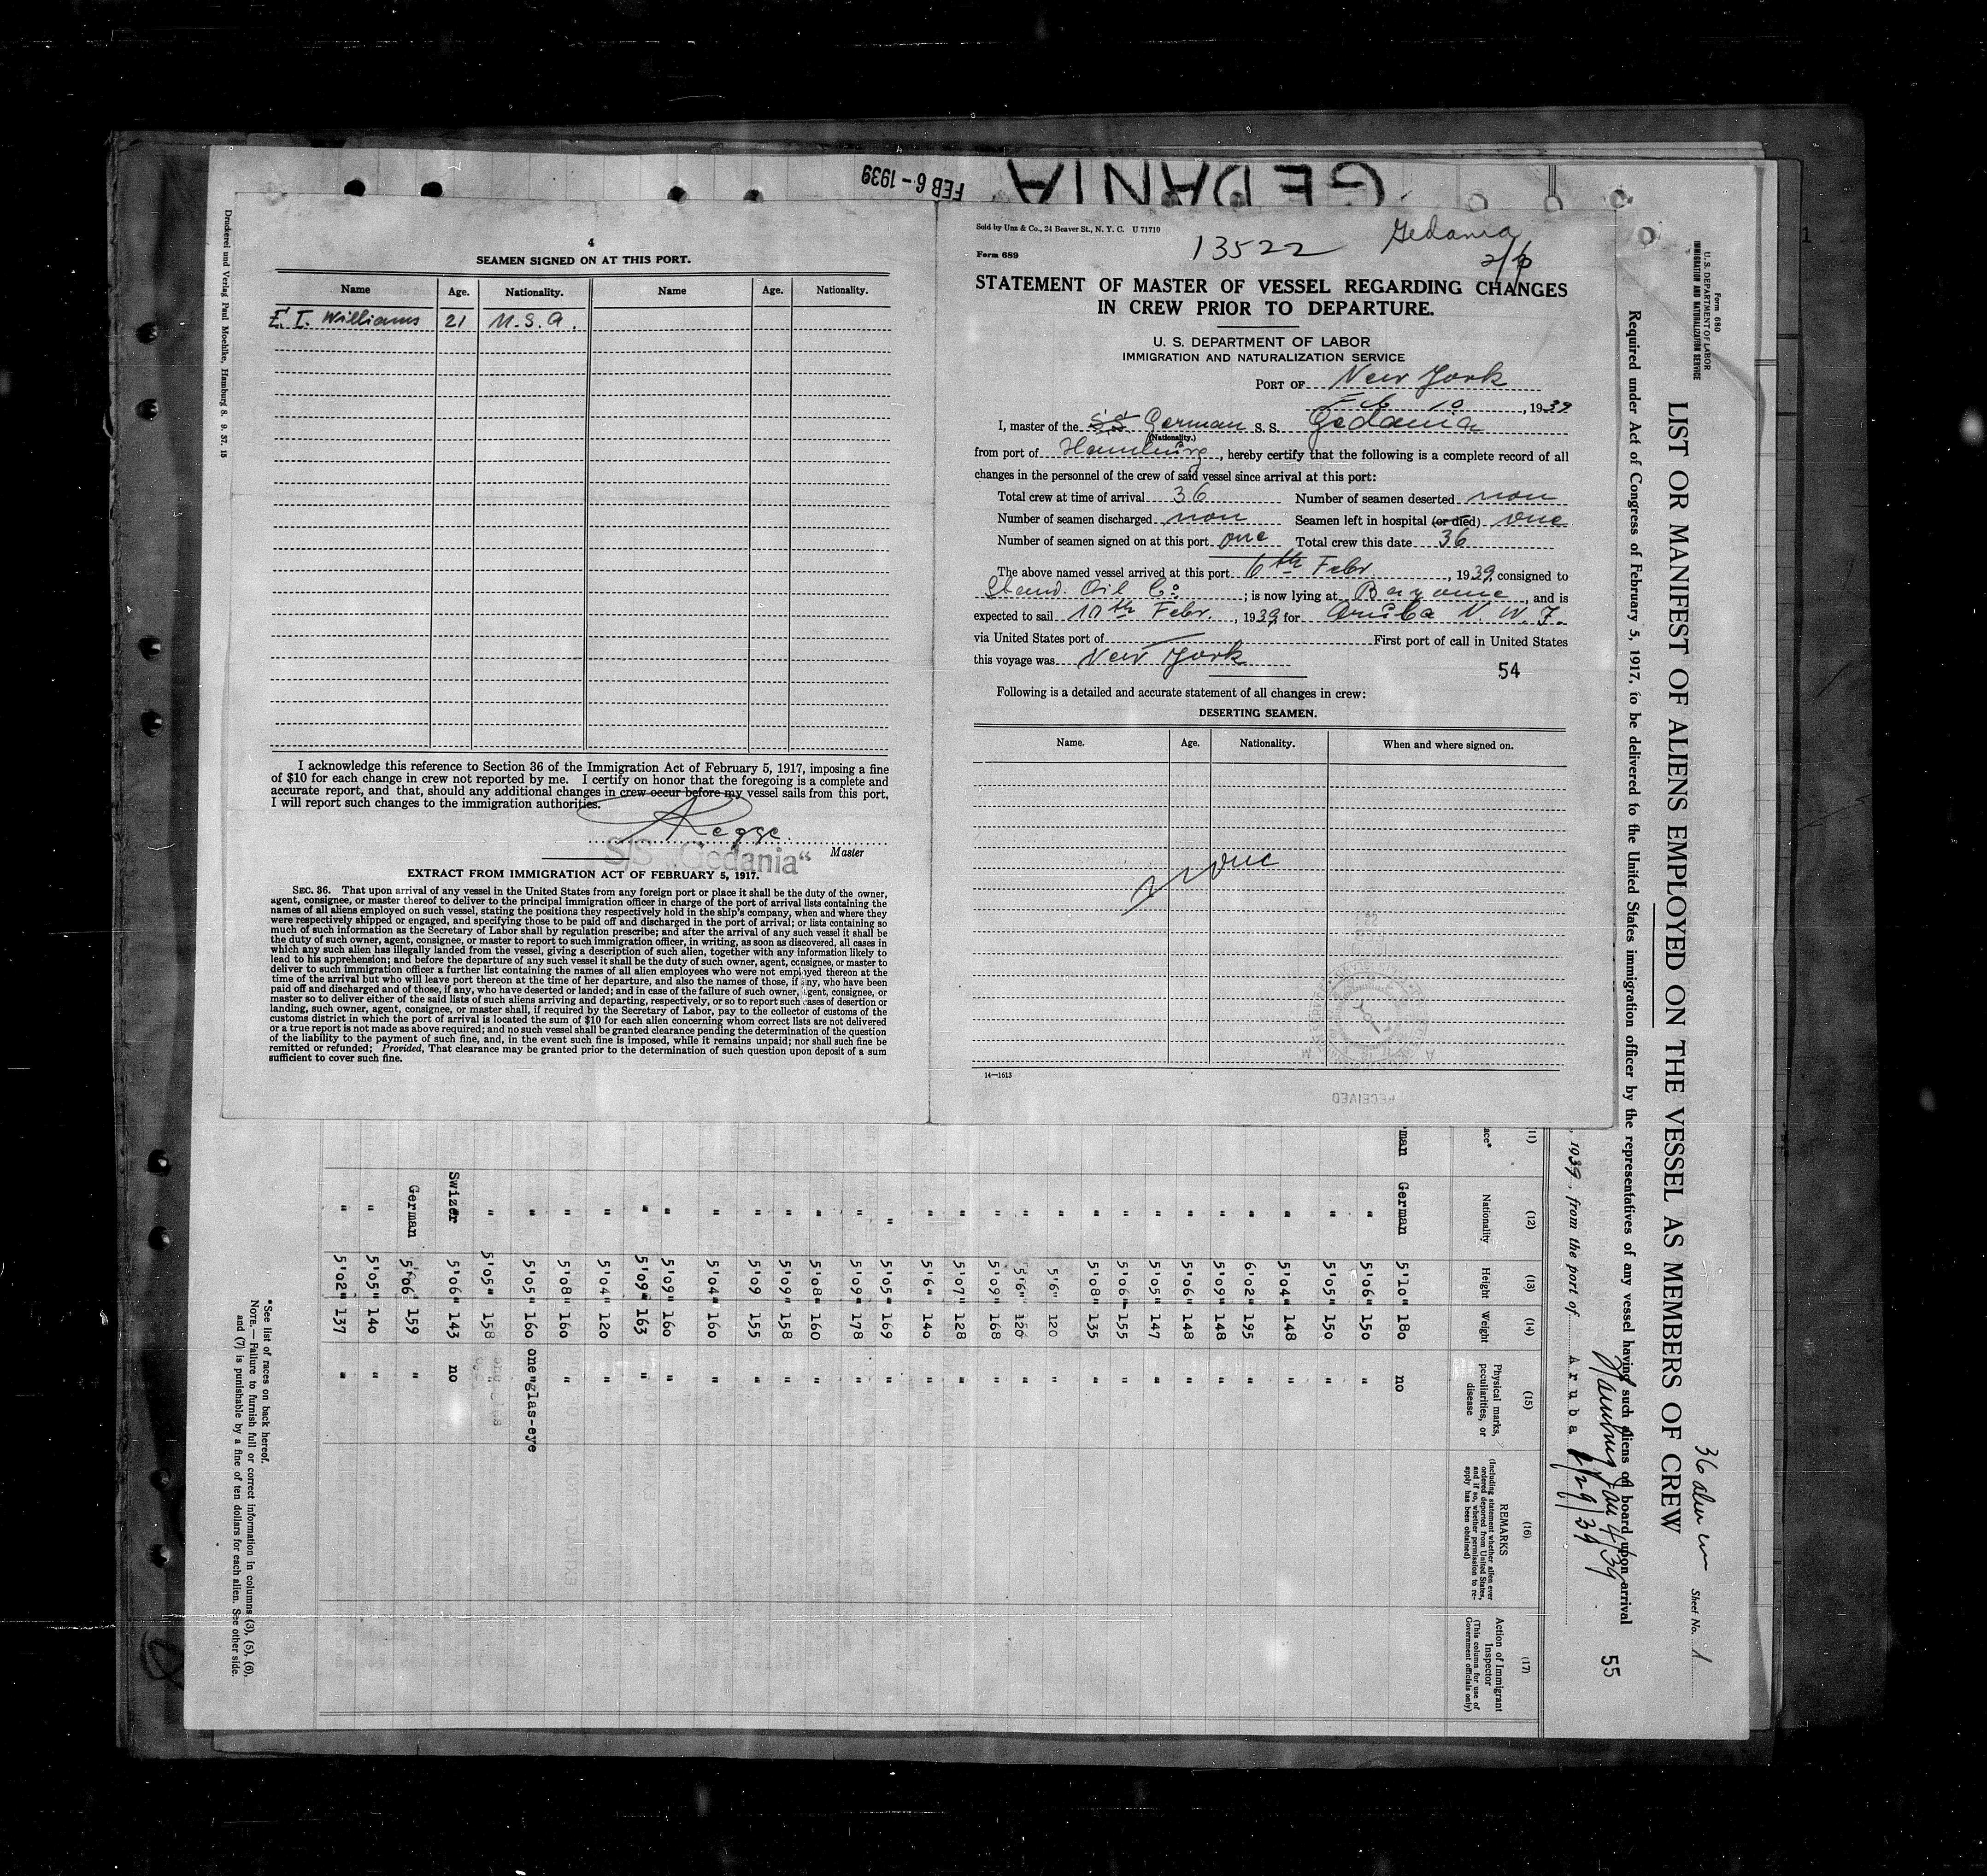 GEDANIA
FEB 6 - 1939
4
SEAMEN SIGNED ON AT THIS PORT.
Name Age. Nationality. Name Age. Nationality.
E. T. Williams 21 U.S.A.
I acknowledge this reference to Section 36 of the Immigration Act of February 5, 1917, imposing a fine
of $10 for each change in crew not reported by me. I certify on honor that the foregoing is a complete and
accurate report, and that, should any additional changes in crew occur before my vessel sails from this port,
I will report such changes to the immigration authorities.
S/S „Gedania“
Master
EXTRACT FROM IMMIGRATION ACT OF FEBRUARY 5, 1917.
SEC. 36. That upon arrival of any vessel in the United States from any foreign port or place it shall be the duty of the owner,
agent, consignee, or master thereof to deliver to the principal immigration officer in charge of the port of arrival lists containing the
names of all aliens employed on such vessel, stating the positions they respectively hold in the ship's company, when and where they
were respectively shipped or engaged, and specifying those to be paid off and discharged in the port of arrival; or lists containing so
much of such information as the Secretary of Labor shall by regulation prescribe; and after the arrival of any such vessel it shall be
the duty of such owner, agent, consignee, or master to report to such immigration officer, in writing, as soon as discovered, all cases in
which any such alien has illegally landed from the vessel, giving a description of such alien, together with any information likely to
lead to his apprehension; and before the departure of any such vessel it shall be the duty of such owner, agent, consignee, or master to
deliver to such immigration officer a further list containing the names of all alien employees who were not employed thereon at the
time of the arrival but who will leave port thereon at the time of her departure, and also the names of those, if any, who have been
paid off and discharged and of those, if any, who have deserted or landed; and in case of the failure of such owner, agent, consignee, or
master so to deliver either of the said lists of such aliens arriving and departing, respectively, or so to report such cases of desertion or
landing, such owner, agent, consignee, or master shall, if required by the Secretary of Labor, pay to the collector of customs of the
customs district in which the port of arrival is located the sum of $10 for each alien concerning whom correct lists are not delivered
or a true report is not made as above required; and no such vessel shall be granted clearance pending the determination of the question
of the liability to the payment of such fine, and, in the event such fine is imposed, while it remains unpaid; nor shall such fine be
remitted or refunded; Provided, That clearance may be granted prior to the determination of such question upon deposit of a sum
sufficient to cover such fine.
Druckerei und Verlag Paul Moehlke, Hamburg 8. 9. 37. 15
Sold by Unz & Co., 24 Beaver St., N. Y. C. U 71710
Form 689
13522 Gedania
2/6
STATEMENT OF MASTER OF VESSEL REGARDING CHANGES
IN CREW PRIOR TO DEPARTURE.
U. S. DEPARTMENT OF LABOR
IMMIGRATION AND NATURALIZATION SERVICE
PORT OF New York
Feb 10, 1939
I, master of the German S. S. Gedania
(Nationality.)
from port of Hamburg, hereby certify that the following is a complete record of all
changes in the personnel of the crew of said vessel since arrival at this port:
Total crew at time of arrival 36 Number of seamen deserted non
Number of seamen discharged non Seamen left in hospital (or died) one
Number of seamen signed on at this port one Total crew this date 36
The above named vessel arrived at this port 6th Febr, 1939, consigned to
Stand. Oil Co; is now lying at Bayonne, and is
expected to sail 10th Febr., 1939 for Aruba N. W. J.
via United States port of First port of call in United States
this voyage was New York
54
Following is a detailed and accurate statement of all changes in crew:
DESERTING SEAMEN.
Name. Age. Nationality. When and where signed on.
14—1613
RECEIVED
Form 680
U. S. DEPARTMENT OF LABOR
IMMIGRATION AND NATURALIZATION SERVICE
36 alien
Sheet No. 1
LIST OR MANIFEST OF ALIENS EMPLOYED ON THE VESSEL AS MEMBERS OF CREW
Required under Act of Congress of February 5, 1917, to be delivered to the United States immigration officer by the representatives of any vessel having such aliens on board upon arrival
55
Hamburg Jan 4/39
, 1939, from the port of Aruba 1/29/39
(11) (12) (13) (14) (15) (16) (17)
ace* Nationality Height Weight Physical marks, peculiarities, or disease REMARKS (Including statement whether alien ever ordered deported from United States, and if so, whether permission to reapply has been obtained) Action of Immigrant Inspector (This column for use of Government officials only)
man German 5'10" 180 no
" 5'06" 150 "
" 5'05" 150 "
" 5'04" 148 "
" 6'02" 195 "
" 5'09" 148 "
" 5'06" 148 "
" 5'05" 147 "
" 5'06" 155 "
" 5'08" 135 "
" 5'6" 120 "
" 5'6" 120 "
" 5'09" 168 "
" 5'07" 128 "
" 5'6" 140 "
" 5'05" 169 "
" 5'09" 178 "
" 5'08" 160 "
" 5'09" 158 "
" 5'09 155 "
" 5'04" 160 "
" 5'09" 160 "
" 5'09" 163 "
" 5'04" 120 "
" 5'08" 160 "
" 5'05" 160 one glas-eye
" 5'05" 158
Swizer 5'06" 143 no
German 5'06" 159 "
" 5'05" 140 "
" 5'02" 137 "
*See list of races on back hereof.
NOTE.—Failure to furnish full or correct information in columns (3), (5), (6),
and (7) is punishable by a fine of ten dollars for each alien. See other side.